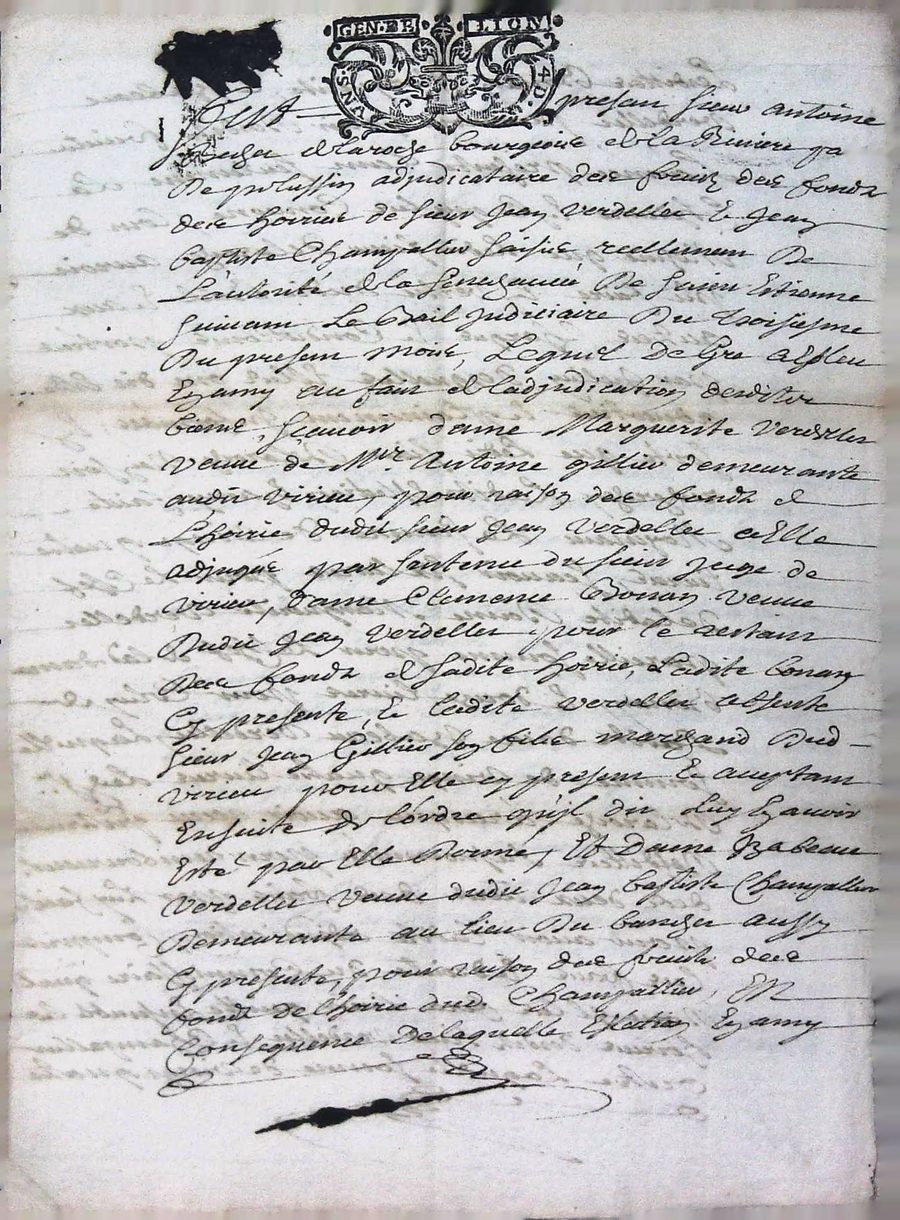 GEN·DE LION
VN·S 4·D
Cest presen sieur antoine
de laroche bourgeois de la Riviere pa
De pelussin adjudicataire des fruictz des fondz
des hoiries de sieur Jean Verdellet & Jean
baptiste Champallier saisies reellement De
L'autorité de la Senechaucée De Sainct Etienne
suivant Le Bail judiciaire Du troisiesme
Du present mois, Lequel De Gre a Esleu
En amy au fait de ladjudication desdits
biens, sçavoir dame Marguerite Verdellet
veuve de Mre Antoine gillier demeurante
audit virieu, pour raison des fondz de
L'hoirie dudit sieur Jean Verdellet a Elle
adjugés par sentence du sieur Juge de
virieu, dame Clemence Bonan veuve
Dudit Jean Verdellet pour le restant
Des fondz de sadite hoirie, Ladite bonan
Cy presente, & ladite Verdellet absente
sieur Jean Gillier son filz marchand Dud
virieu pour Elle cy present & aceptant
Ensuite de l'ordre qu'il dit Luy En avoir
Esté par Elle Donné, Et Dame Izabeau
Verdellet veuve dudit Jean baptiste Champallier
Demeurante au lieu Du aussy
Cy presente, pour raison des fruictz des
fondz de l'hoirie dud. Champallier, En
Consequence De laquelle Election En amy